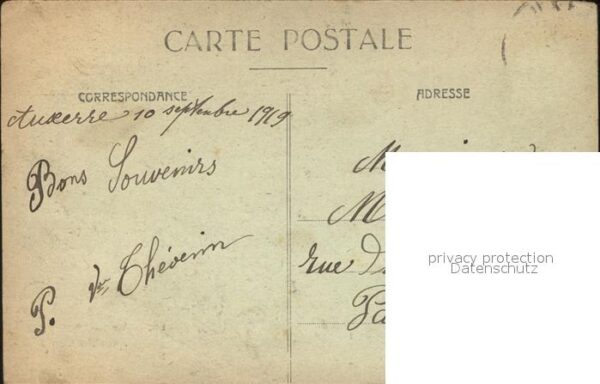 CARTE POSTALE
CORRESPONDANCE
Auxerre 10 septembre 1919
Bons Souvenirs
P. Vve Thévenin
ADRESSE
M
M
rue
privacy protection
Datenschutz